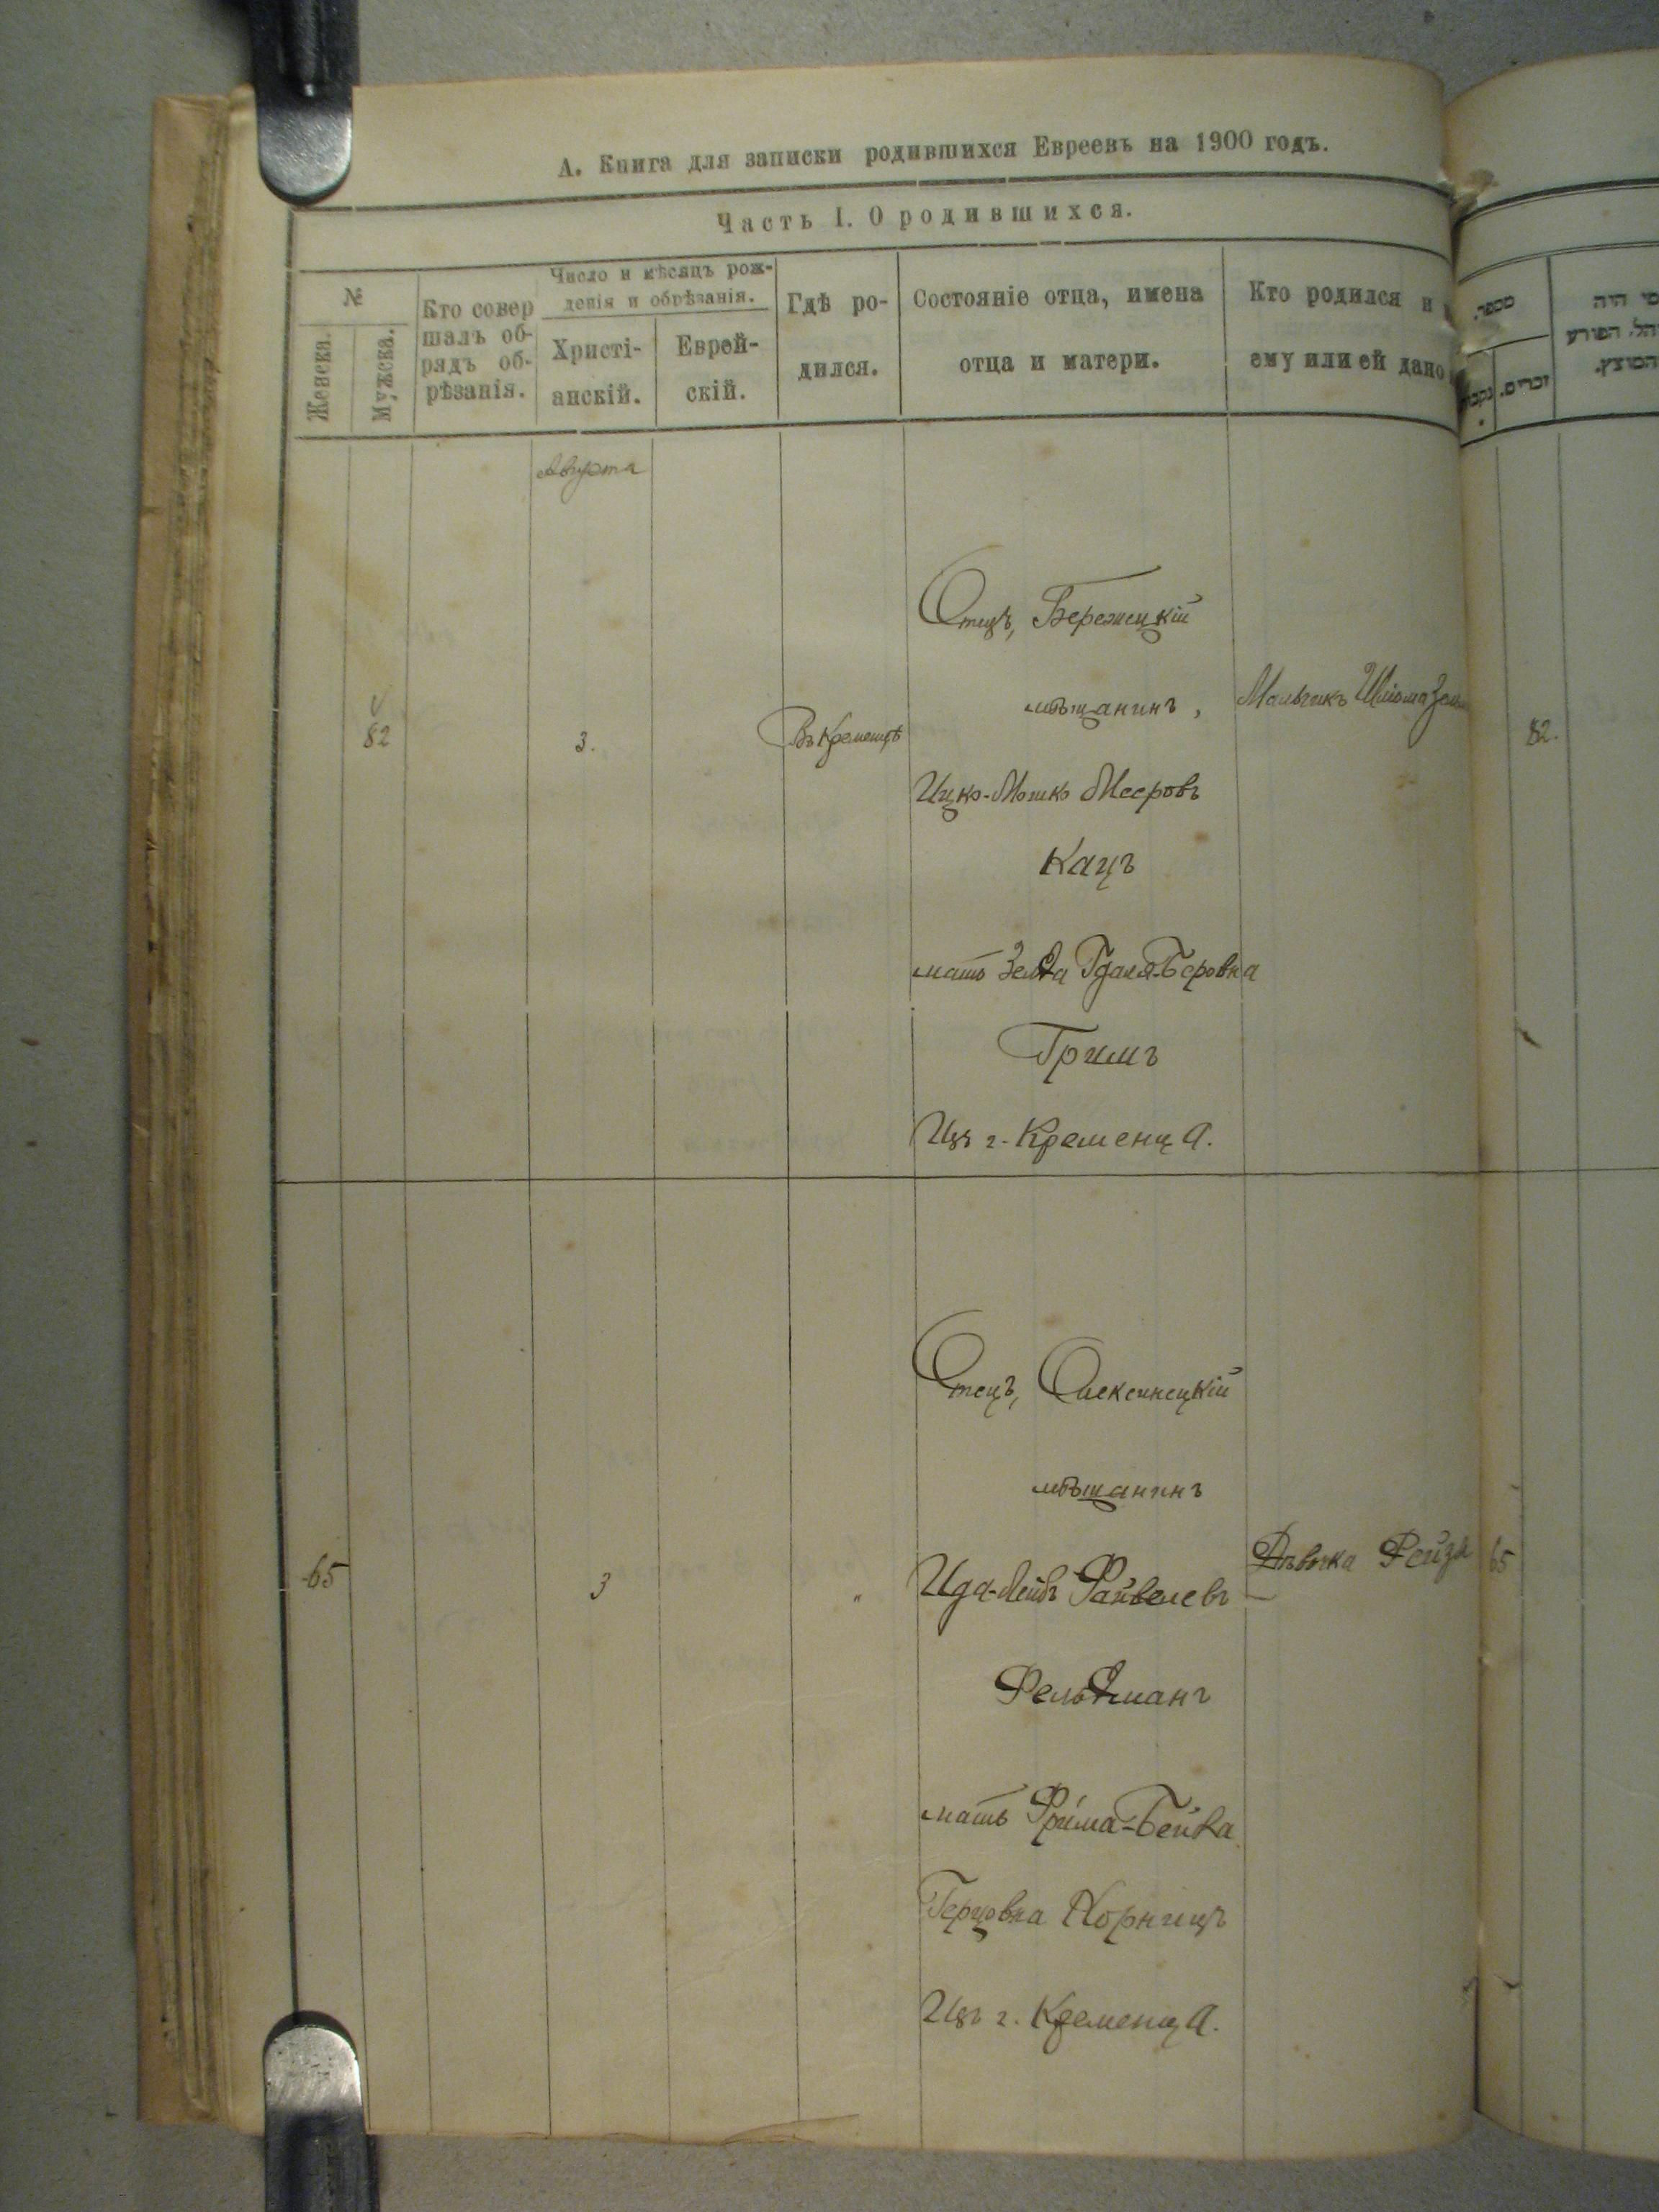 А. Книга для записки родившихся Евреевъ на 1900 годъ.
Часть I. О родившихся.
№
Женска.
Мужска.
Кто совер
шалъ об-
рядъ об-
рѣзанія.
Число и мѣсяцъ рож-
денія и обрѣзанія.
Христі-
анскій.
Еврей-
скій.
Гдѣ ро-
дился.
Состояніе отца, имена
отца и матери.
Кто родился и
ему или ей дано
מספר.
זכרים.
מי היה
המוהל. הפורע
המוצץ.
Августа
82
3.
Въ Кременцѣ
Отецъ, Бережецкій
мѣщанинъ,
Ицко-Мошко Мееровъ
Кацъ
мать Зелда Гдаля-Беровна
Гримъ
Изъ г. Кременца.
Мальчикъ Шлома
82.
65
3
"
Отецъ, Олексинецкій
мѣщанинъ
Ида-Лейбъ Файвелевъ
Фельдманъ
мать Фрима-Бейла
Герцовна Корницъ
Изъ г. Кременца.
Дѣвочка Рейзя
65